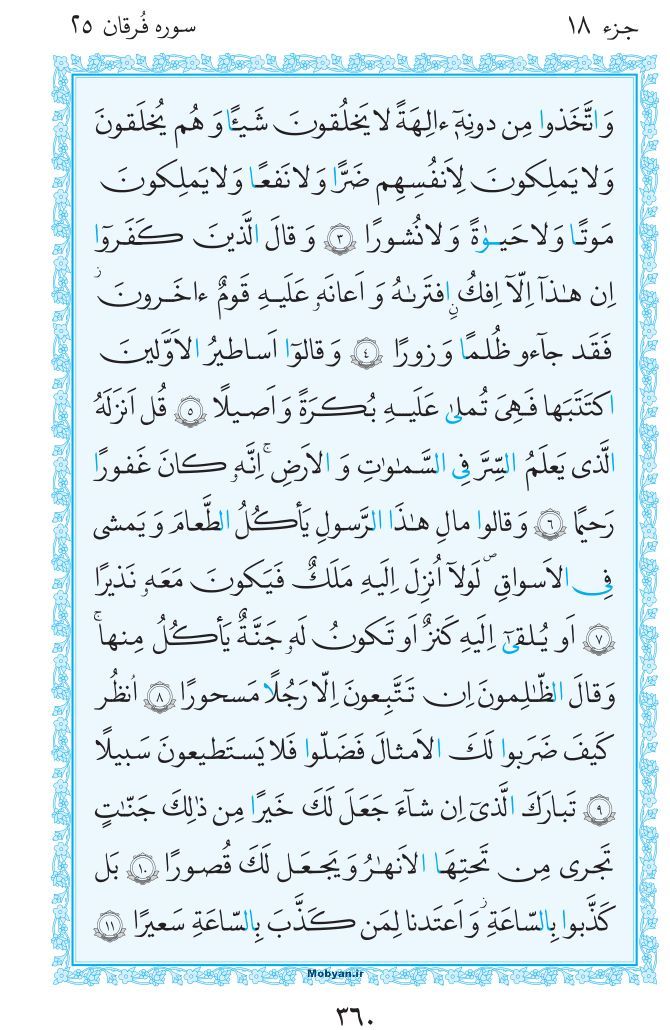 جزء ١٨
سوره فُرقان ٢٥
وَ اتَّخَذوا مِن دونِهٖٓ ءالِهَةً لا يَخلُقونَ شَيـًٔا وَ هُم يُخلَقونَ
وَ لا يَملِكونَ لِاَنفُسِهِم ضَرًّا وَ لا نَفعًا وَ لا يَملِكونَ
مَوتًا وَ لا حَيوٰةً وَ لا نُشورًا ﴿٣﴾ وَ قالَ الَّذينَ كَفَروٓا
اِن هٰذآ اِلّآ اِفكٌ ۨافتَرىٰهُ وَ اَعانَهٗ عَلَيهِ قَومٌ ءاخَرونَ ۖ
فَقَد جآءو ظُلمًا وَ زورًا ﴿٤﴾ وَ قالوٓا اَساطيرُ الاَوَّلينَ
اكتَتَبَها فَهِىَ تُملىٰ عَلَيهِ بُكرَةً وَ اَصيلًا ﴿٥﴾ قُل اَنزَلَهُ
الَّذى يَعلَمُ السِّرَّ فِى السَّمٰوٰتِ وَ الاَرضِ ۚ اِنَّهٗ كانَ غَفورًا
رَحيمًا ﴿٦﴾ وَ قالوا مالِ هٰذَا الرَّسولِ يَأكُلُ الطَّعامَ وَ يَمشى
فِى الاَسواقِ ۖ لَولآ اُنزِلَ اِلَيهِ مَلَكٌ فَيَكونَ مَعَهٗ نَذيرًا
﴿٧﴾ اَو يُلقىٰٓ اِلَيهِ كَنزٌ اَو تَكونُ لَهٗ جَنَّةٌ يَأكُلُ مِنها ۚ
وَ قالَ الظّٰلِمونَ اِن تَتَّبِعونَ اِلّا رَجُلًا مَسحورًا ﴿٨﴾ اُنظُر
كَيفَ ضَرَبوا لَكَ الاَمثالَ فَضَلّوا فَلا يَستَطيعونَ سَبيلًا
﴿٩﴾ تَبارَكَ الَّذىٓ اِن شآءَ جَعَلَ لَكَ خَيرًا مِن ذٰلِكَ جَنّٰتٍ
تَجرى مِن تَحتِهَا الاَنهٰرُ وَ يَجعَل لَكَ قُصورًا ﴿١٠﴾ بَل
كَذَّبوا بِالسّاعَةِ ۖ وَ اَعتَدنا لِمَن كَذَّبَ بِالسّاعَةِ سَعيرًا ﴿١١﴾
Mobyan.ir
٣٦٠